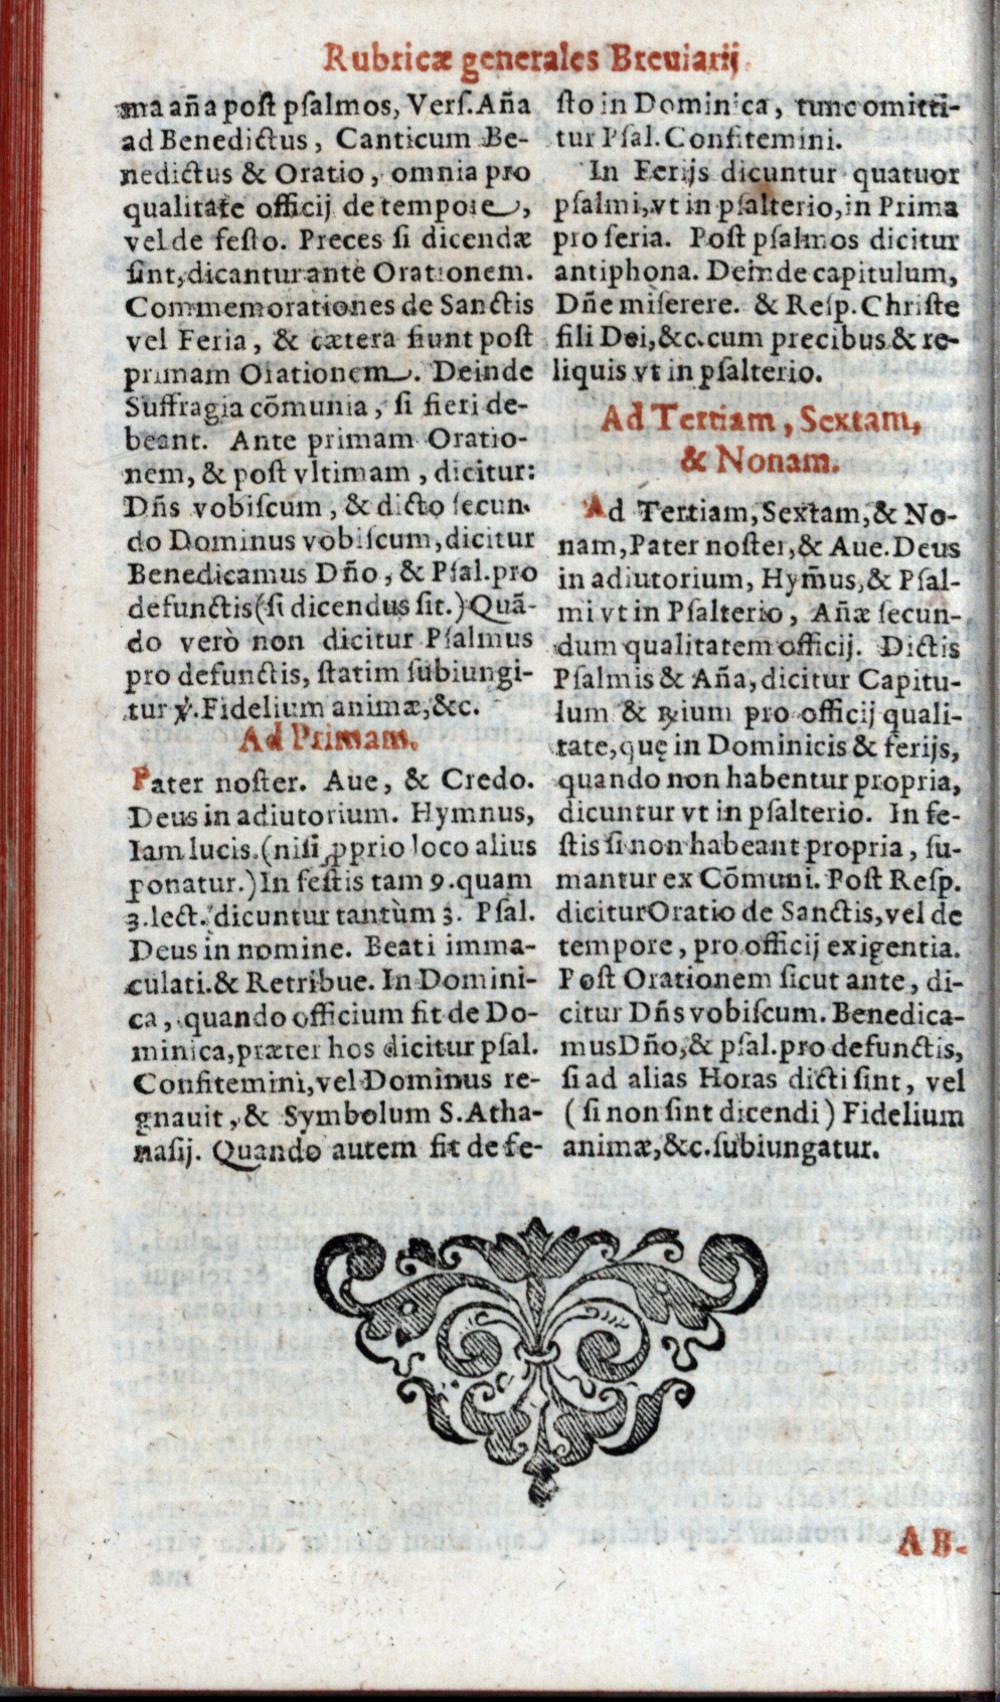 Rubricæ generales Breuiarij
ma aña post psalmos, Vers. Aña
ad Benedictus, Canticum Be-
nedictus & Oratio, omnia pro
qualitate officij de tempore,
vel de festo. Preces si dicendæ
sint, dicantur ante Orationem.
Commemorationes de Sanctis
vel Feria, & cætera fiunt post
primam Orationem. Deinde
Suffragia cõmunia, si fieri de-
beant. Ante primam Oratio-
nem, & post vltimam, dicitur:
Dñs vobiscum, & dicto secun-
do Dominus vobiscum, dicitur
Benedicamus Dño, & Psal. pro
defunctis (si dicendus sit.) Quã-
do verò non dicitur Psalmus
pro defunctis, statim subiungi-
tur ℣. Fidelium animæ, &c.
Ad Primam.
Pater noster. Aue, & Credo.
Deus in adiutorium. Hymnus,
Iam lucis. (nisi ꝓprio loco alius
ponatur.) In festis tam 9. quam
3. lect. dicuntur tantùm 3. Psal.
Deus in nomine. Beati imma-
culati. & Retribue. In Domini-
ca, quando officium fit de Do-
minica, præter hos dicitur psal.
Confitemini, vel Dominus re-
gnauit, & Symbolum S. Atha-
nasij. Quando autem fit de fe-
sto in Dominica, tunc omitti-
tur Psal. Confitemini.
In Ferijs dicuntur quatuor
psalmi, vt in psalterio, in Prima
pro feria. Post psalmos dicitur
antiphona. Deinde capitulum,
Dñe miserere. & Resp. Christe
fili Dei, &c. cum precibus & re-
liquis vt in psalterio.
Ad Tertiam, Sextam,
& Nonam.
Ad Tertiam, Sextam, & No-
nam, Pater noster, & Aue. Deus
in adiutorium, Hym̃us, & Psal-
mi vt in Psalterio, Añæ secun-
dum qualitatem officij. Dictis
Psalmis & Aña, dicitur Capitu-
lum & ℞ium pro officij quali-
tate, quę in Dominicis & ferijs,
quando non habentur propria,
dicuntur vt in psalterio. In fe-
stis si non habeant propria, su-
mantur ex Cõmuni. Post Resp.
dicitur Oratio de Sanctis, vel de
tempore, pro officij exigentia.
Post Orationem sicut ante, di-
citur Dñs vobiscum. Benedica-
mus Dño, & psal. pro defunctis,
si ad alias Horas dicti sint, vel
(si non sint dicendi) Fidelium
animæ, &c. subiungatur.
AB-